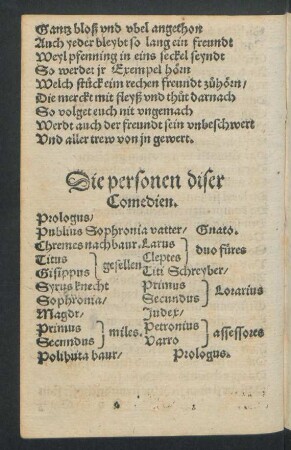 Gantz bloß vnd vbel angethon
Auch yeder bleybt so lang ein freundt
Weyl pfenning in eins seckel seyndt
So werdet jr Exempel hörn
Welch stück eim rechen freundt zůhörn/
Die merckt mit fleyß vnd thůt darnach
So volget euch nit vngemach
Werdt auch der freundt sein vnbeschwert
Vnd aller trew von jn gewert.
Die personen diser
Comedien.
Prologus/
Publius Sophronia vatter/ Gnato.
Chremes nachbaur. Larus duo fures
Titus gesellen Cleptes
Gisippus Titi Schreyber/
Syrus knecht Primus Lorarius
Sophronia/ Secundus
Magdt/ Judex/
Primus miles. Petronius assessores
Secundus Varro
Polihuta baur/ Prologus.